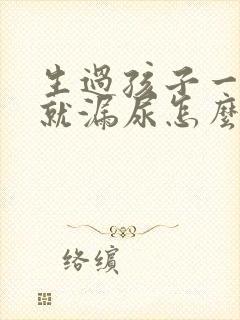 生過孩子一
就漏尿怎麼
络繽